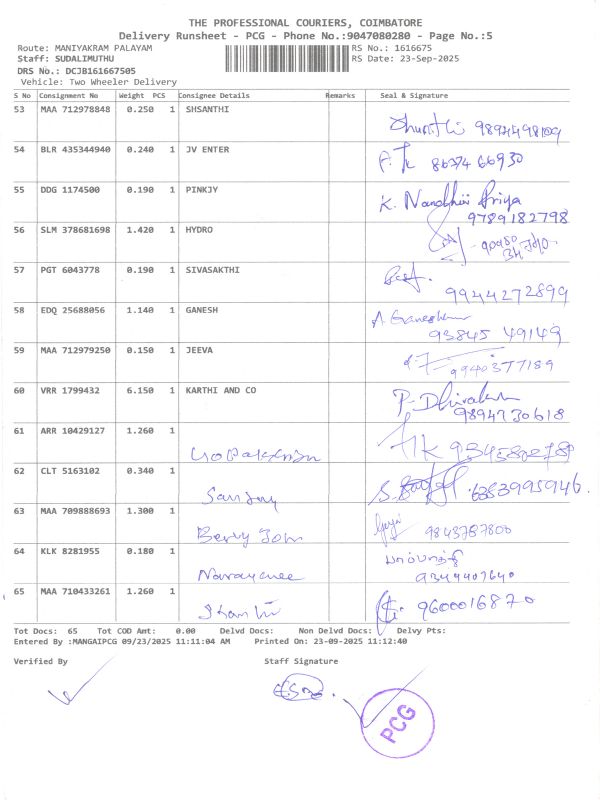 THE PROFESSIONAL COURIERS, COIMBATORE
Delivery Runsheet - PCG - Phone No.:9047080280 - Page No.:5
Route: MANIYAKRAM PALAYAM RS No.: 1616675
Staff: SUDALIMUTHU RS Date: 23-Sep-2025
DRS No.: DCJB161667505
Vehicle: Two Wheeler Delivery
S No Consignment No Weight PCS Consignee Details Remarks Seal & Signature
53 MAA 712978848 0.250 1 SHSANTHI
Shanthi 9894498109
54 BLR 435344940 0.240 1 JV ENTER
8637466930
55 DDG 1174500 0.190 1 PINKJY
K. Nandhini Priya
9789182798
56 SLM 378681698 1.420 1 HYDRO
57 PGT 6043778 0.190 1 SIVASAKTHI
9944272899
58 EDQ 25688056 1.140 1 GANESH
A Ganeshkumar
93845 49149
59 MAA 712979250 0.150 1 JEEVA
9940377189
60 VRR 1799432 6.150 1 KARTHI AND CO
9894730618
61 ARR 10429127 1.260 1
Gopalkrishnan
62 CLT 5163102 0.340 1
Sanjay 6383995946.
63 MAA 709888693 1.300 1
Berry Tom 9843787800
64 KLK 8281955 0.180 1
Narayanee
65 MAA 710433261 1.260 1
Shanthi 9600016870
Tot Docs: 65 Tot COD Amt: 0.00 Delvd Docs: Non Delvd Docs: Delvy Pts:
Entered By :MANGAIPCG 09/23/2025 11:11:04 AM Printed On: 23-09-2025 11:12:40
Verified By Staff Signature
PCG